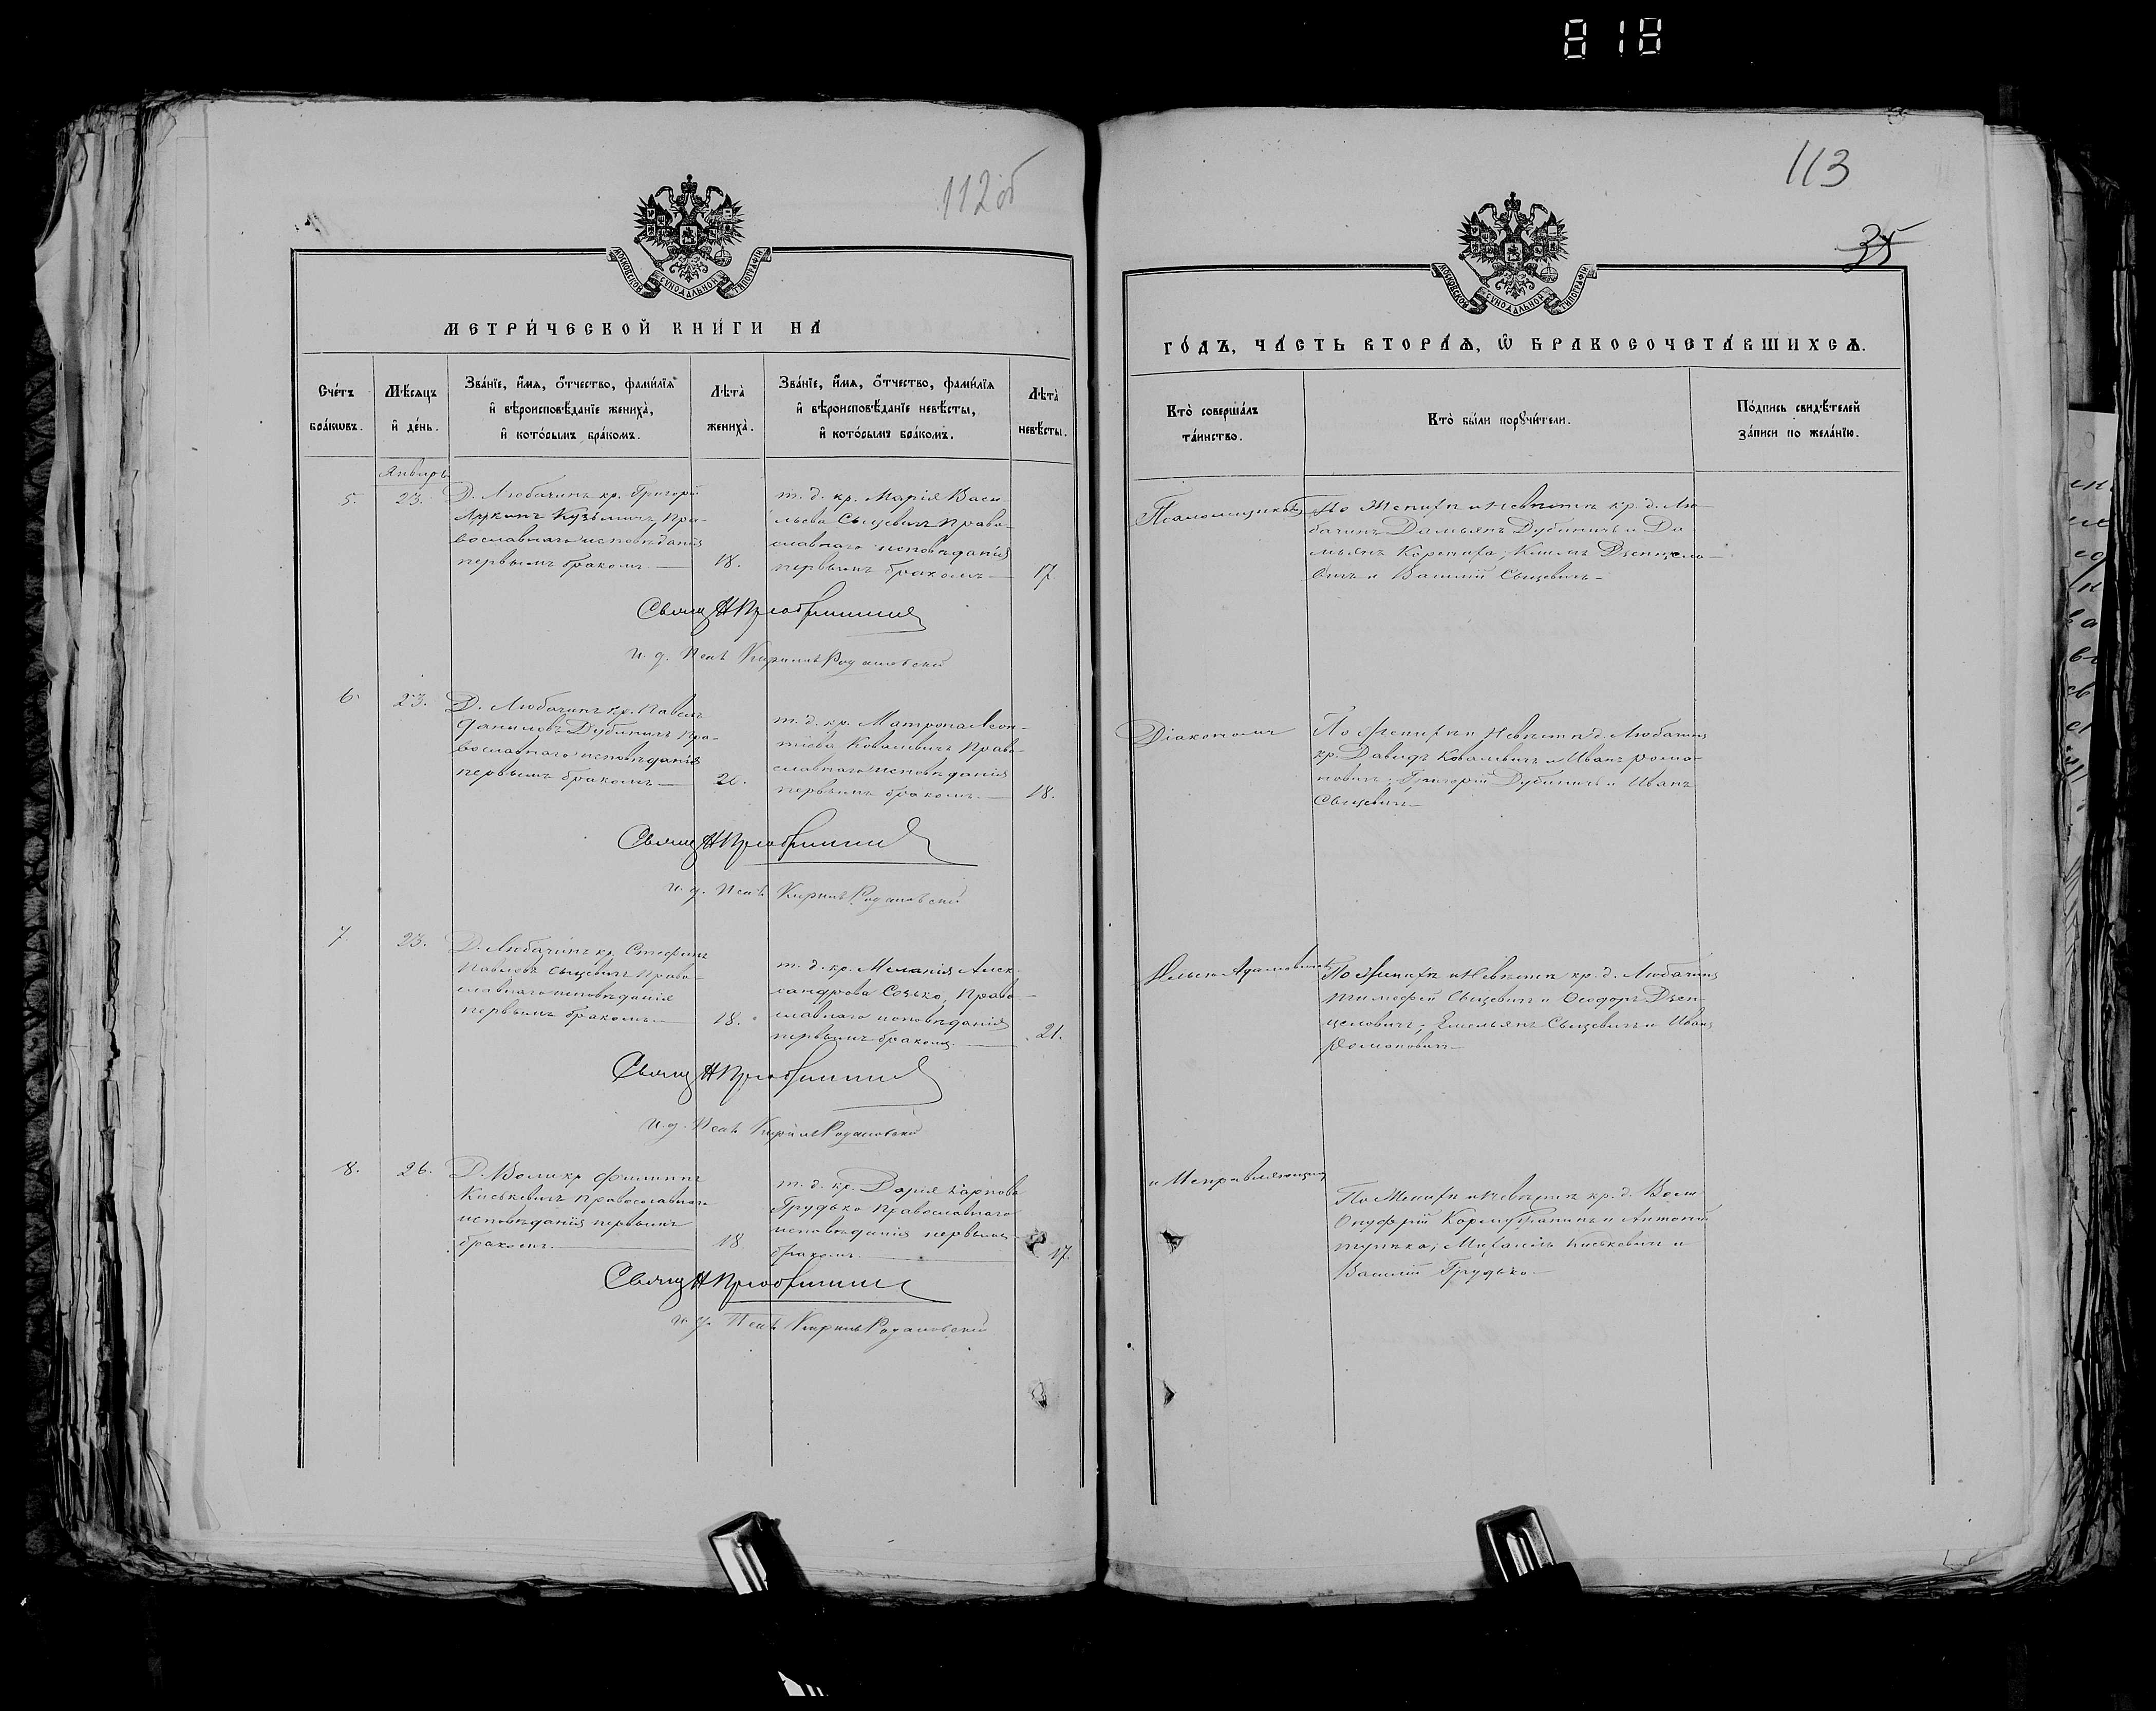 818
112об
МОСКОВСКОЙ СѴНОДАЛЬНОЙ ТИПОГРАФІИ
МЕТРИ́ЧЕСКОЙ КНИ́ГИ НА
Сче́тъ бра́кωвъ.
Мѣ́сяцъ и҆ де́нь.
Зва́нїе, и҆́мѧ, ѻ҆́тчество, фами́лїѧ
и҆ вѣроисповѣ́данїе жениха̀,
и҆ кото́рымъ бра́комъ.
Лѣта̀ жениха̀.
Зва́нїе, и҆́мѧ, ѻ҆́тчество, фами́лїѧ
и҆ вѣроисповѣ́данїе невѣ́сты,
и҆ кото́рымъ бра́комъ.
Лѣта̀ невѣ́сты.
Январь
5.
23.
Д. Любачинъ кр. Григорій
Кузьмичъ, Пра-
вославнаго исповѣданія
первымъ бракомъ.
18.
т. д. кр. Марія Васи-
льева Свицевичъ Право-
славнаго исповѣданія
первымъ бракомъ
17.
Свящ
и. д. Псал. Кирилъ
6.
23.
Д. Любачинъ кр. Павелъ
Даниловъ Дубиничъ Пра-
вославнаго исповѣданія
первымъ бракомъ
20.
т. д. кр. Матрона Леон-
тіева Ковалевичъ Право-
славнаго исповѣданія
первымъ бракомъ.
18.
Свящ
и. д. Псал. Кирилъ
7.
23.
Д. Любачинъ кр. Стефанъ
Павловъ Свицевичъ Право-
славнаго исповѣданія
первымъ бракомъ.
18.
т. д. кр. Меланія Алек-
сандрова Сечко, Право-
славнаго исповѣданія
первымъ бракомъ.
21.
Свящ
и. д. Псал. Кирилъ
8.
26.
Д. Воли кр. Филиппъ
Киськевичъ Православнаго
исповѣданія первымъ
бракомъ.
18
т. д. кр. Дарія Карпова
Грудько Православнаго
исповѣданія первымъ
бракомъ.
17.
Свящ
и. д. Псал. Кирилъ
113
35
МОСКОВСКОЙ СѴНОДАЛЬНОЙ ТИПОГРАФІИ
ГО́ДЪ, ЧА́СТЬ ВТОРА́Ѧ, Ѡ҆ БРАКОСОЧЕТА́ВШИХСѦ.
Кто̀ соверша́лъ
та́инство.
Кто̀ бы́ли порꙋчи́тели.
По́дпись свидѣ́телей
за́писи по жела́нїю.
По Женихѣ и Невѣстѣ кр. д. Лю-
бачинъ Дамьянъ Дубиничъ и Да
мьянъ Клим Дзенцело-
вичъ и Василій Свицевичъ
Діакономъ
По Женихѣ и Невѣстѣ д. Любачинъ
кр. Давидъ Ковалевичъ и Иванъ Рома-
новичъ; Григорій Дубиничъ и Иванъ
Свицевичъ
Адамовичъ
По Женихѣ и Невѣстѣ кр. д. Любачинъ
Тимофей Свицевичъ и Ѳеодоръ Дзен-
целовичъ; Емельянъ Свицевичъ и Иванъ
Романовичъ
По Женихѣ и Невѣстѣ кр. д. Воли
Онуфрій и Антоній
Михаилъ Киськевичъ и
Василій Грудько.